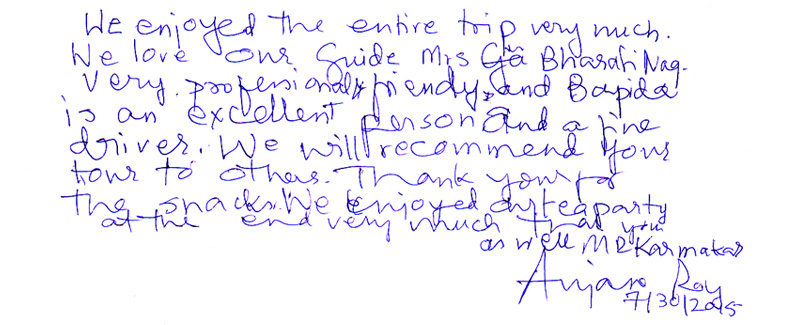 We enjoyed the entire trip very much.
We love our Guide Mrs Bharati Nag.
Very professional & friendly, and Bapida
is an excellent person and a fine
driver. We will recommend your
tour to others. Thank you for
the snacks. We enjoyed our tea party
at the end very much that you
as well MR Karmakar
Anjan Roy
7/30/2015